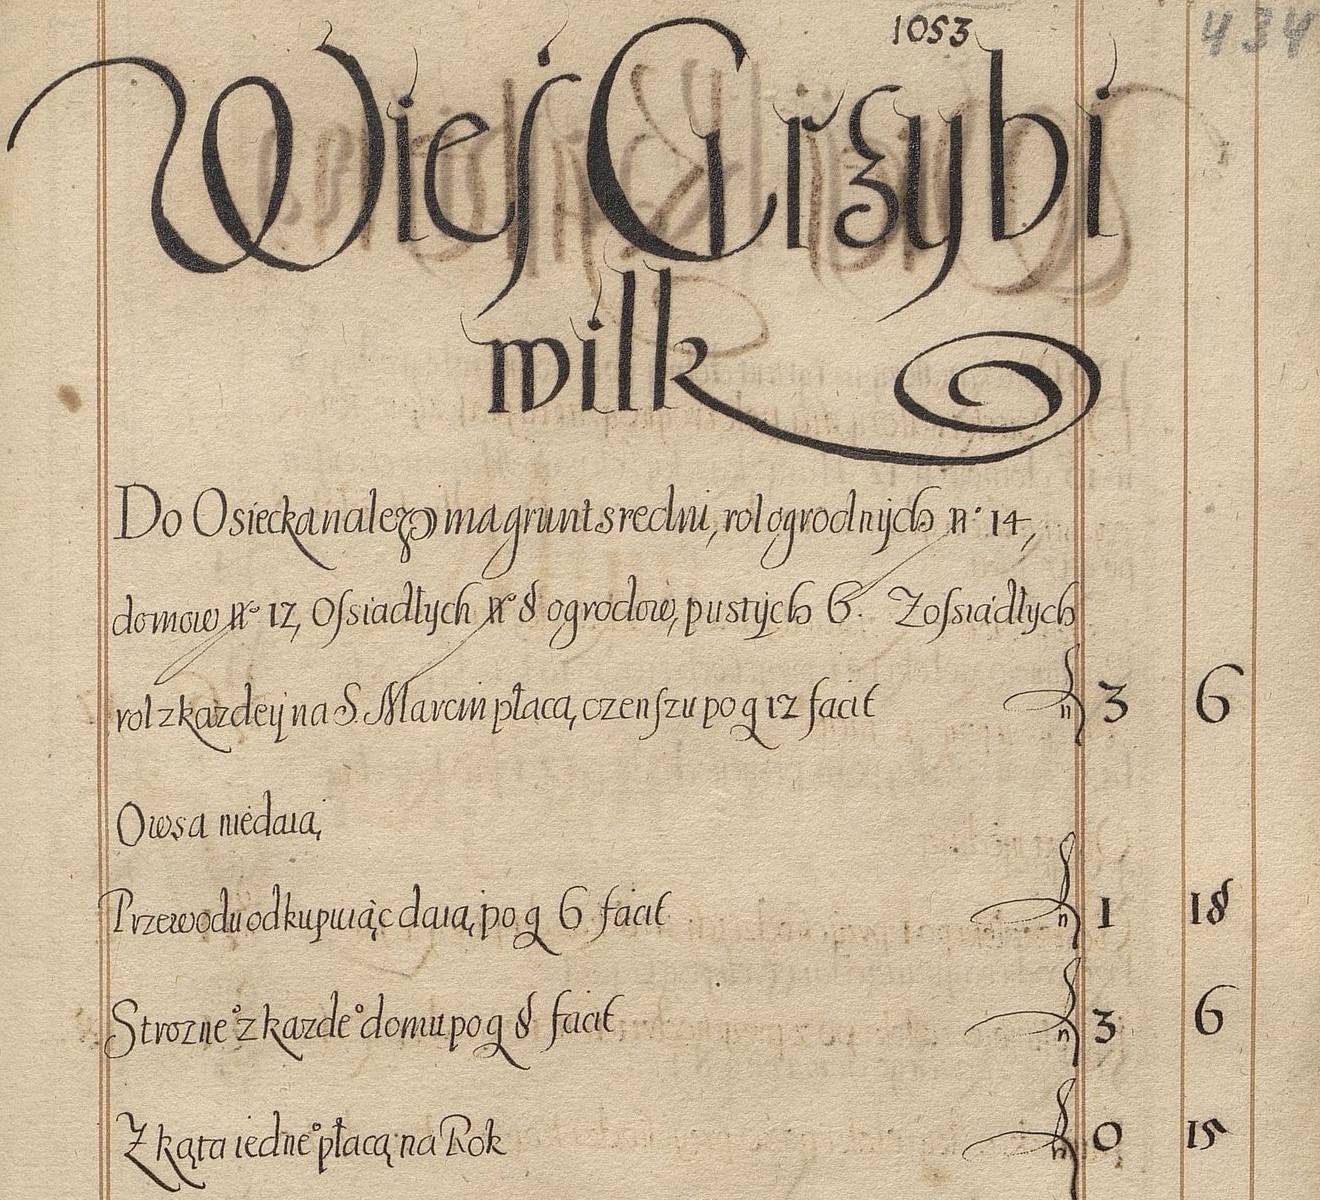 1053
434
Wieś Grzybi
wilk
Do Osiecka należą ma grunt sredni, rol ogrodnijch nº 14,
domow nº 12, Ossiadłych nº 8 ogrodow, pustijch 6. Z ossiadłych
rol z kazdeij na S. Marcin płacą, czenszu po g 12 facit fl 3 6
Owsa niedaią,
Przewodu odkupuiąc daią, po g 6 facit fl 1 18
Strozneº z kazdeº domu po g 8 facit fl 3 6
Z kąta iedneº płacą na Rok fl 0 15